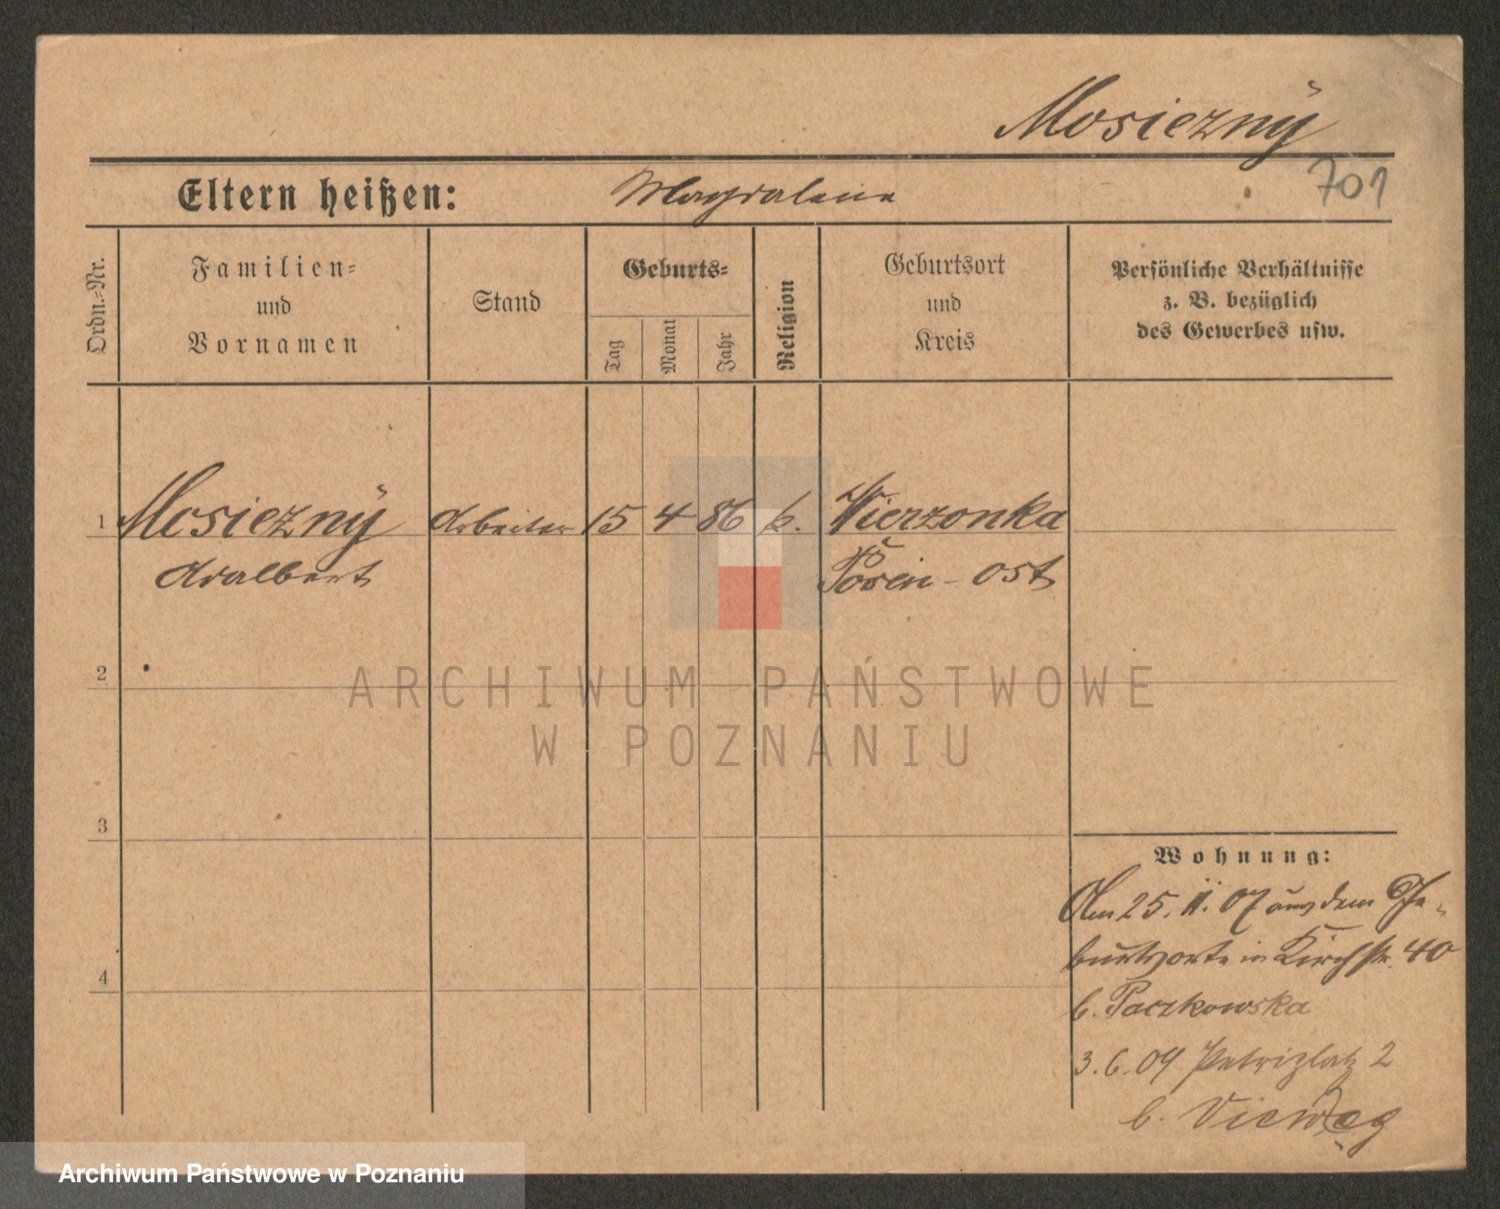 Mosiezny
Eltern heißen: Magdalena
701
Ordn.-Nr.
Familien-
und
Vornamen
Stand
Geburts-
Tag
Monat
Jahr
Religion
Geburtsort
und
Kreis
Persönliche Verhältnisse
z. B. bezüglich
des Gewerbes usw.
1 Mosiezny Arbeiter 15 4 86 k. Wierzonka
Adalbert Posen-Ost
2
ARCHIWUM PAŃSTWOWE
W POZNANIU
3
Wohnung:
Am 25. 11. 07 aus dem Ge-
burtsorte in Kirchstr. 40
4
b. Paczkowska
3. 6. 09 Petriplatz 2
b. Vieweg
Archiwum Państwowe w Poznaniu